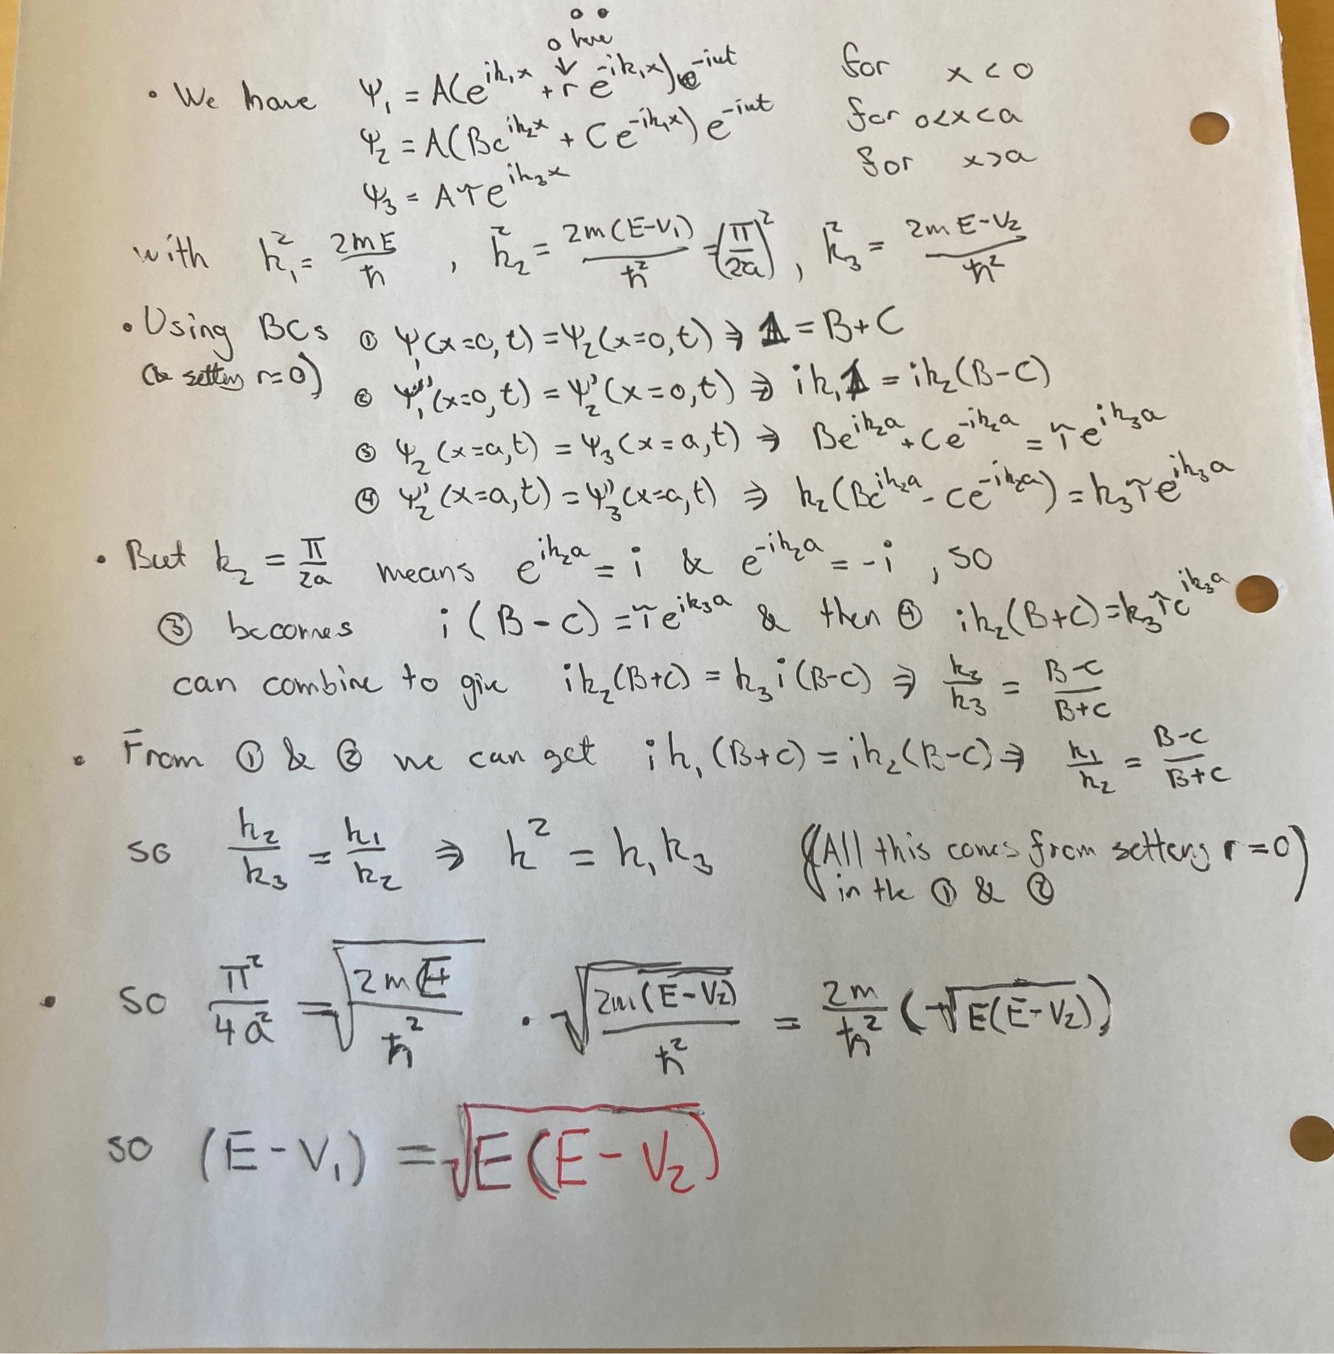 0 here
• We have Ψ₁ = A(e^{ik₁x} + r e^{-ik₁x}) e^{-iωt} for x < 0
Ψ₂ = A(Be^{ik₂x} + Ce^{-ik₂x}) e^{-iωt} for 0<x<a
Ψ₃ = Aτe^{ik₃x} for x>a
with k₁² = 2mE/ħ , k₂² = 2m(E-V₁)/ħ² = (π/2a)² , k₃² = 2mE-V₂/ħ²
• Using BCs ① Ψ₁(x=0,t) = Ψ₂(x=0,t) ⇒ 1 = B+C
(& setting r=0) ② Ψ₁'(x=0,t) = Ψ₂'(x=0,t) ⇒ ik₁1 = ik₂(B-C)
③ Ψ₂(x=a,t) = Ψ₃(x=a,t) ⇒ Be^{ik₂a} + Ce^{-ik₂a} = τe^{ik₃a}
④ Ψ₂'(x=a,t) = Ψ₃'(x=a,t) ⇒ k₂(Be^{ik₂a} - Ce^{-ik₂a}) = k₃τe^{ik₃a}
• But k₂ = π/2a means e^{ik₂a} = i & e^{-ik₂a} = -i , so
③ becomes i(B-C) = τe^{ik₃a} & then ④ ik₂(B+C) = k₃τe^{ik₃a}
can combine to give ik₂(B+C) = k₃i(B-C) ⇒ k₂/k₃ = B-C/B+C
• From ① & ② we can get ik₁(B+C) = ik₂(B-C) ⇒ k₁/k₂ = B-C/B+C
so k₂/k₃ = k₁/k₂ ⇒ k² = k₁k₃ (All this comes from setting r=0
in the ① & ②)
• so π²/4a² = √(2mE/ħ²) · √(2m(E-V₂)/ħ²) = 2m/ħ² (+√E(E-V₂))
so (E-V₁) = √E(E-V₂)